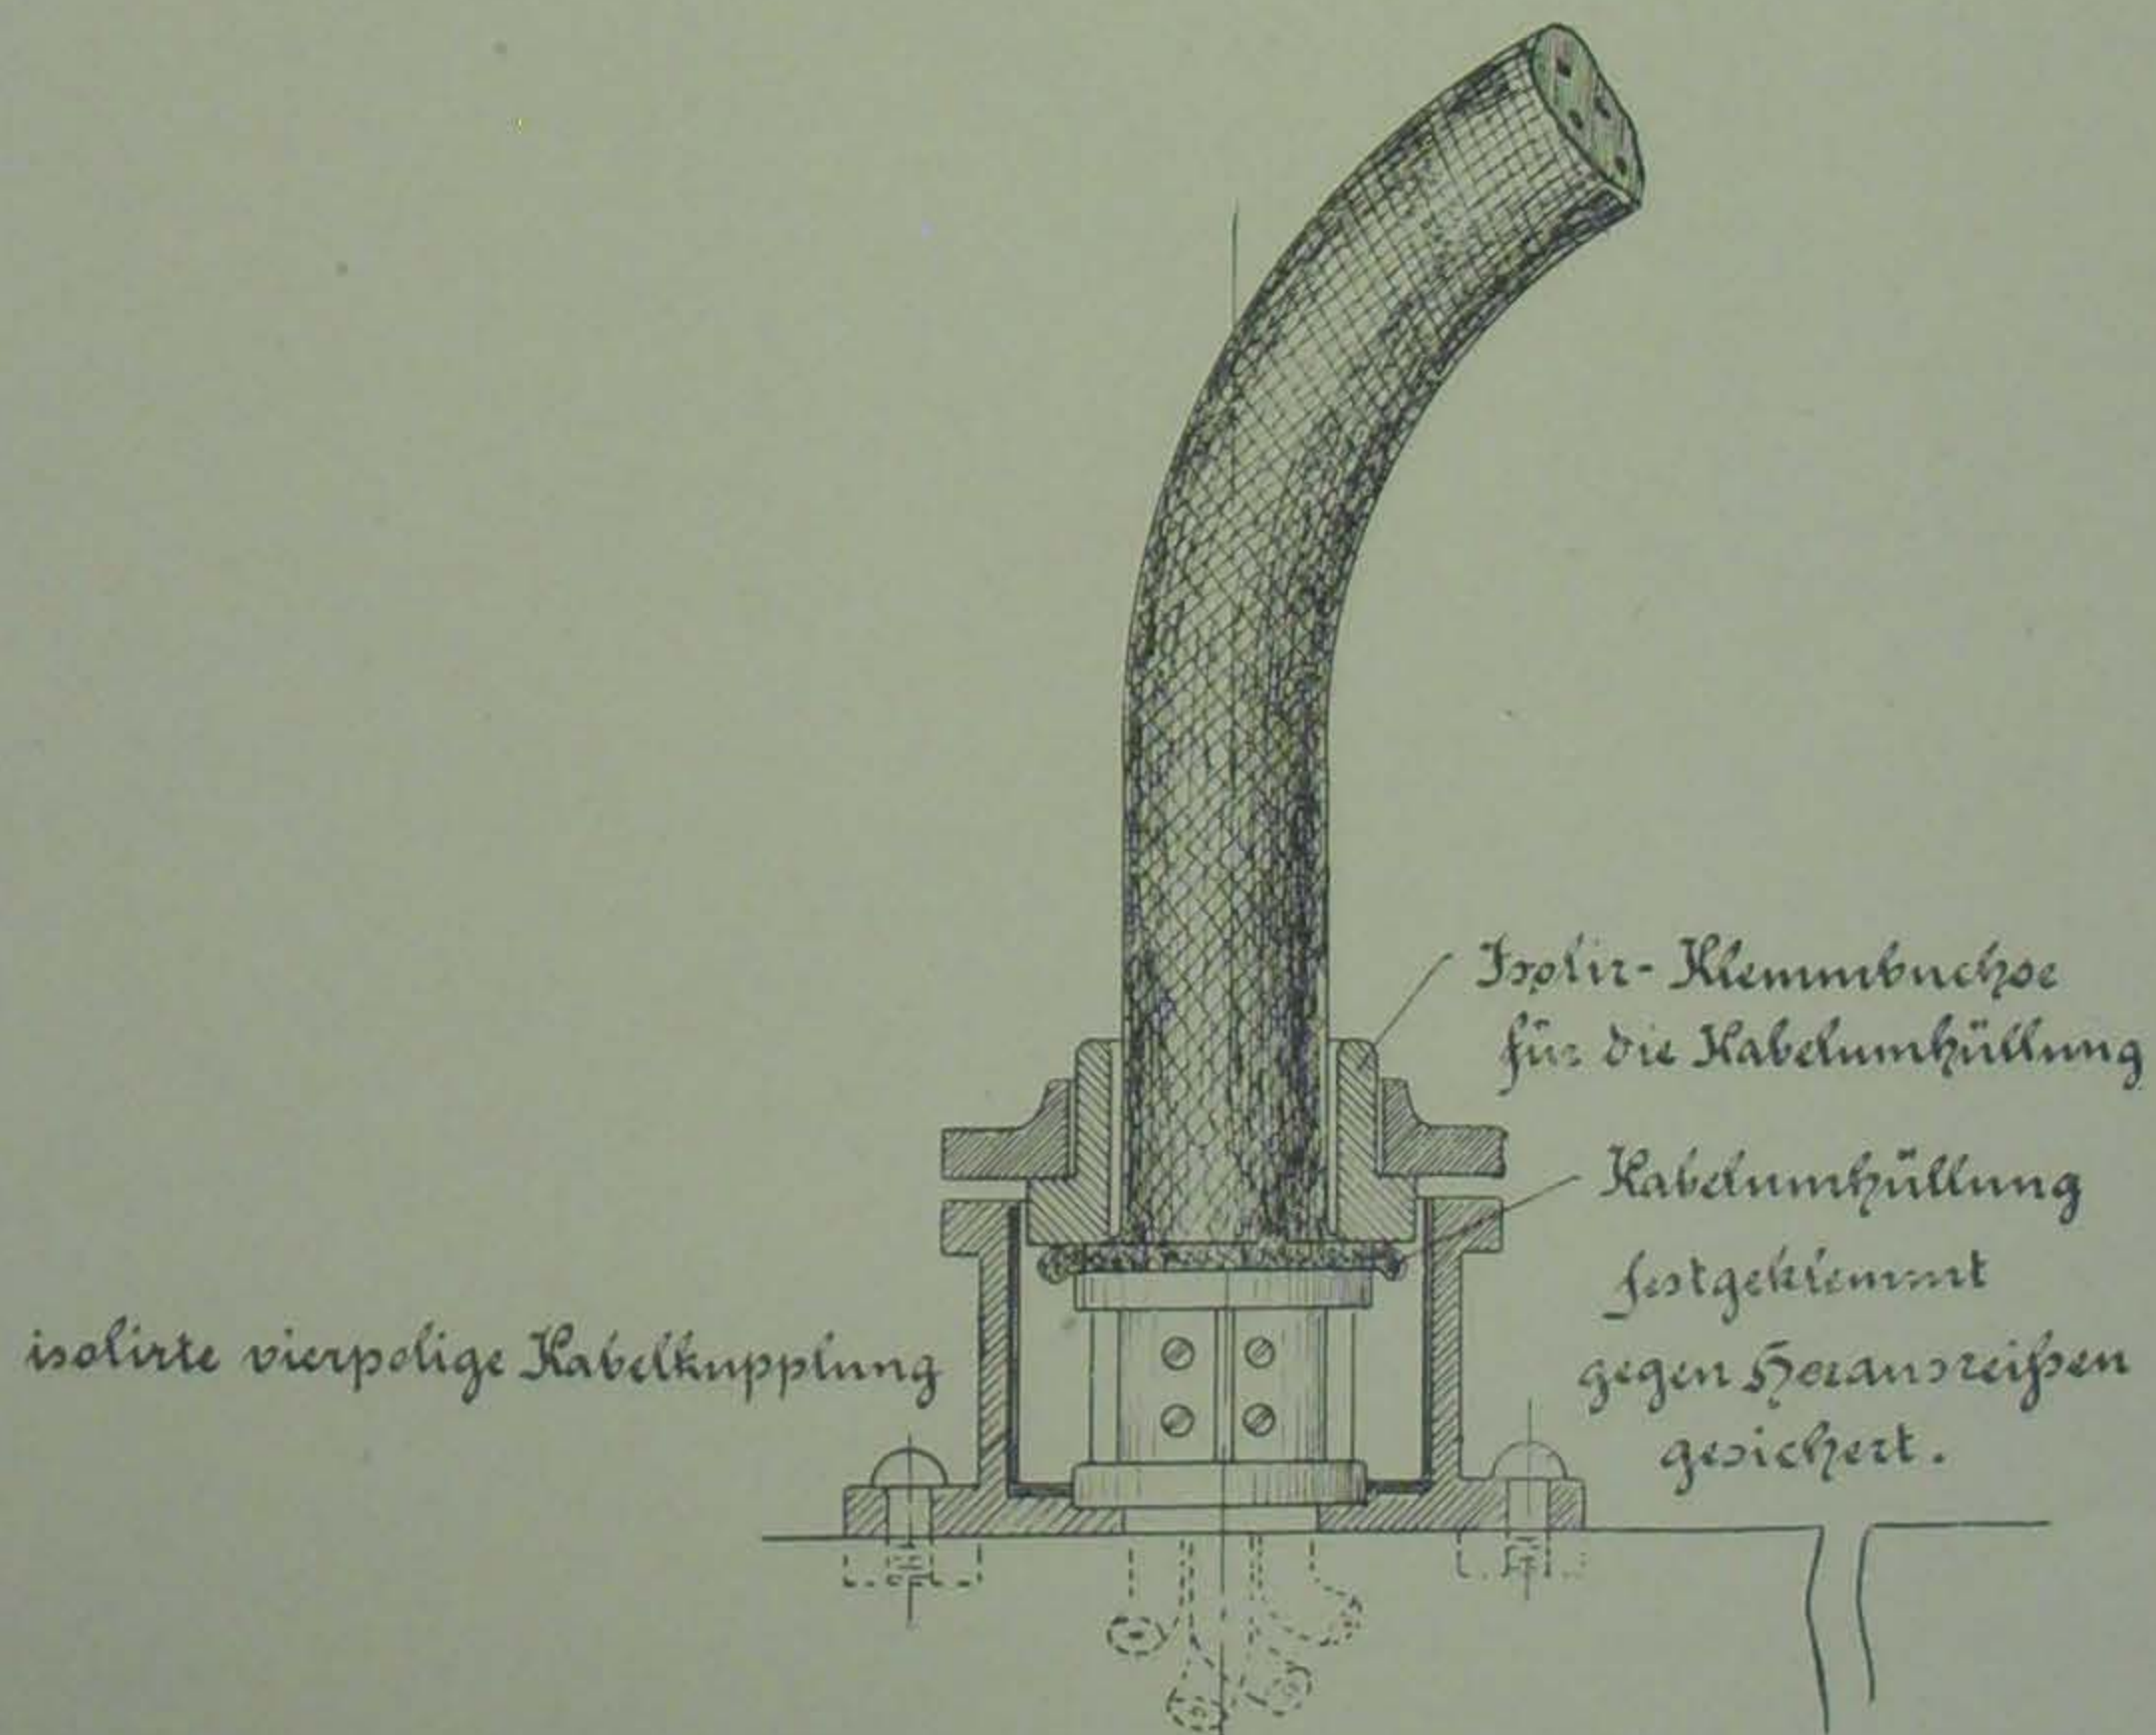 Isolir-Klemmbuchse
für die Kabelumhüllung
Kabelumhüllung
festgeklemmt
gegen Herausreißen
gesichert.
isolirte vierpolige Kabelkupplung